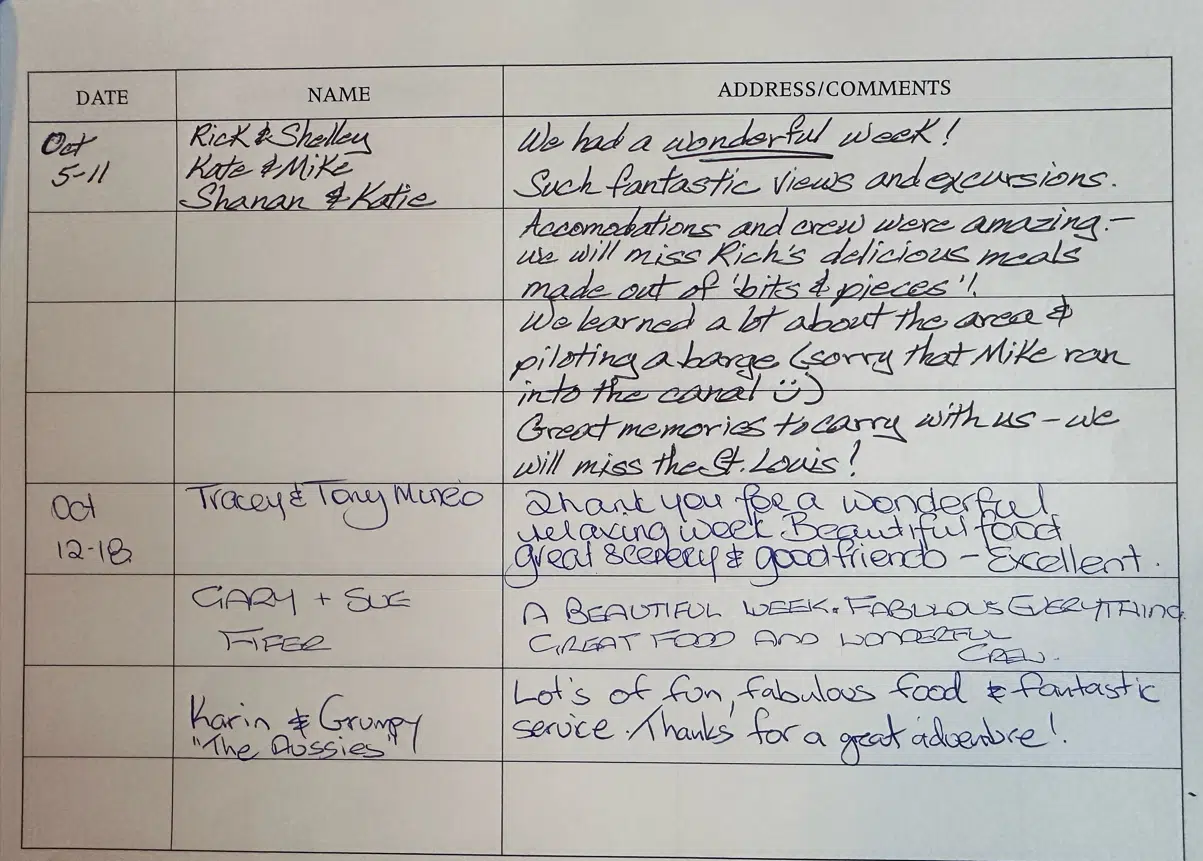 DATE NAME ADDRESS/COMMENTS
Oct
5-11
Rick & Shelley
Kate & Mike
Shanan & Katie
We had a wonderful week!
Such fantastic views and excursions.
Accomodations and crew were amazing -
we will miss Rich's delicious meals
made out of 'bits & pieces'!
We learned a lot about the area &
piloting a barge (sorry that Mike ran
into the canal ☺)
Great memories to carry with us - we
will miss the St. Louis!
Oct
12-18
Tracey & Tony
Thank you for a wonderful
relaxing week Beautiful food
great scenery & good friends - Excellent.
GARY + SUE
FIFER
A BEAUTIFUL WEEK. FABULOUS EVERYTHING.
GREAT FOOD AND WONDERFUL
CREW.
Karin & Grumpy
"The Aussies"
Lot's of fun, fabulous food & fantastic
service. Thanks for a great adventure!